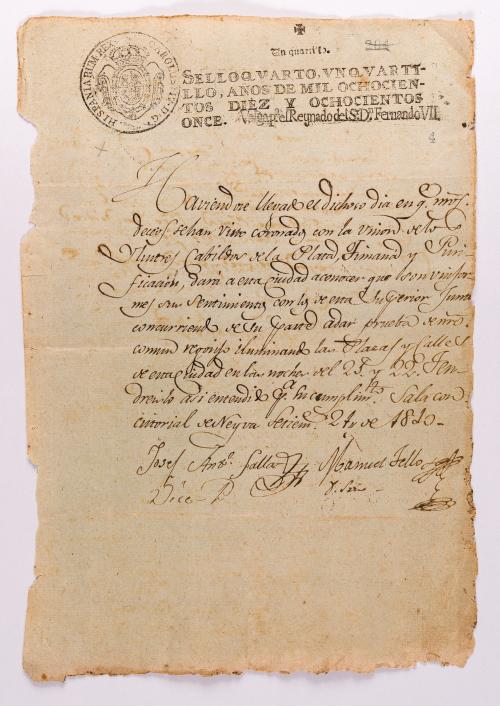 Un quartillo.
HISPANIARUM REX CAROLUS IV D.G.
SELLO QVARTO, VN QVARTI-
LLO, AÑOS DE MIL OCHOCIEN-
TOS DIEZ Y OCHOCIENTOS
ONCE. Valga pª. el Reynado del S.D. Fernando VII
4
Haviendose llegado el dichoso dia en q. nrõs.
deceos se han visto coronados con la union de los
Ylustres Cabildos de la Plata, Timaná y Puri-
ficacion, dará a esta ciudad a conocer que son unifor-
mes sus Sentimientos con los de esta Superior Junta
concurriendo de su parte a dar prueba de nrõ.
comun regosijo iluminando las Plazas y Calles
de esta Ciudad en las noches del 23. y 22. Ten-
dreislo asi entendido pª. su cumplimto. Sala con-
citorial de Neyva Setiemb. 21 de 1810-
Josef Antº. Manuel Tello
Vice P.